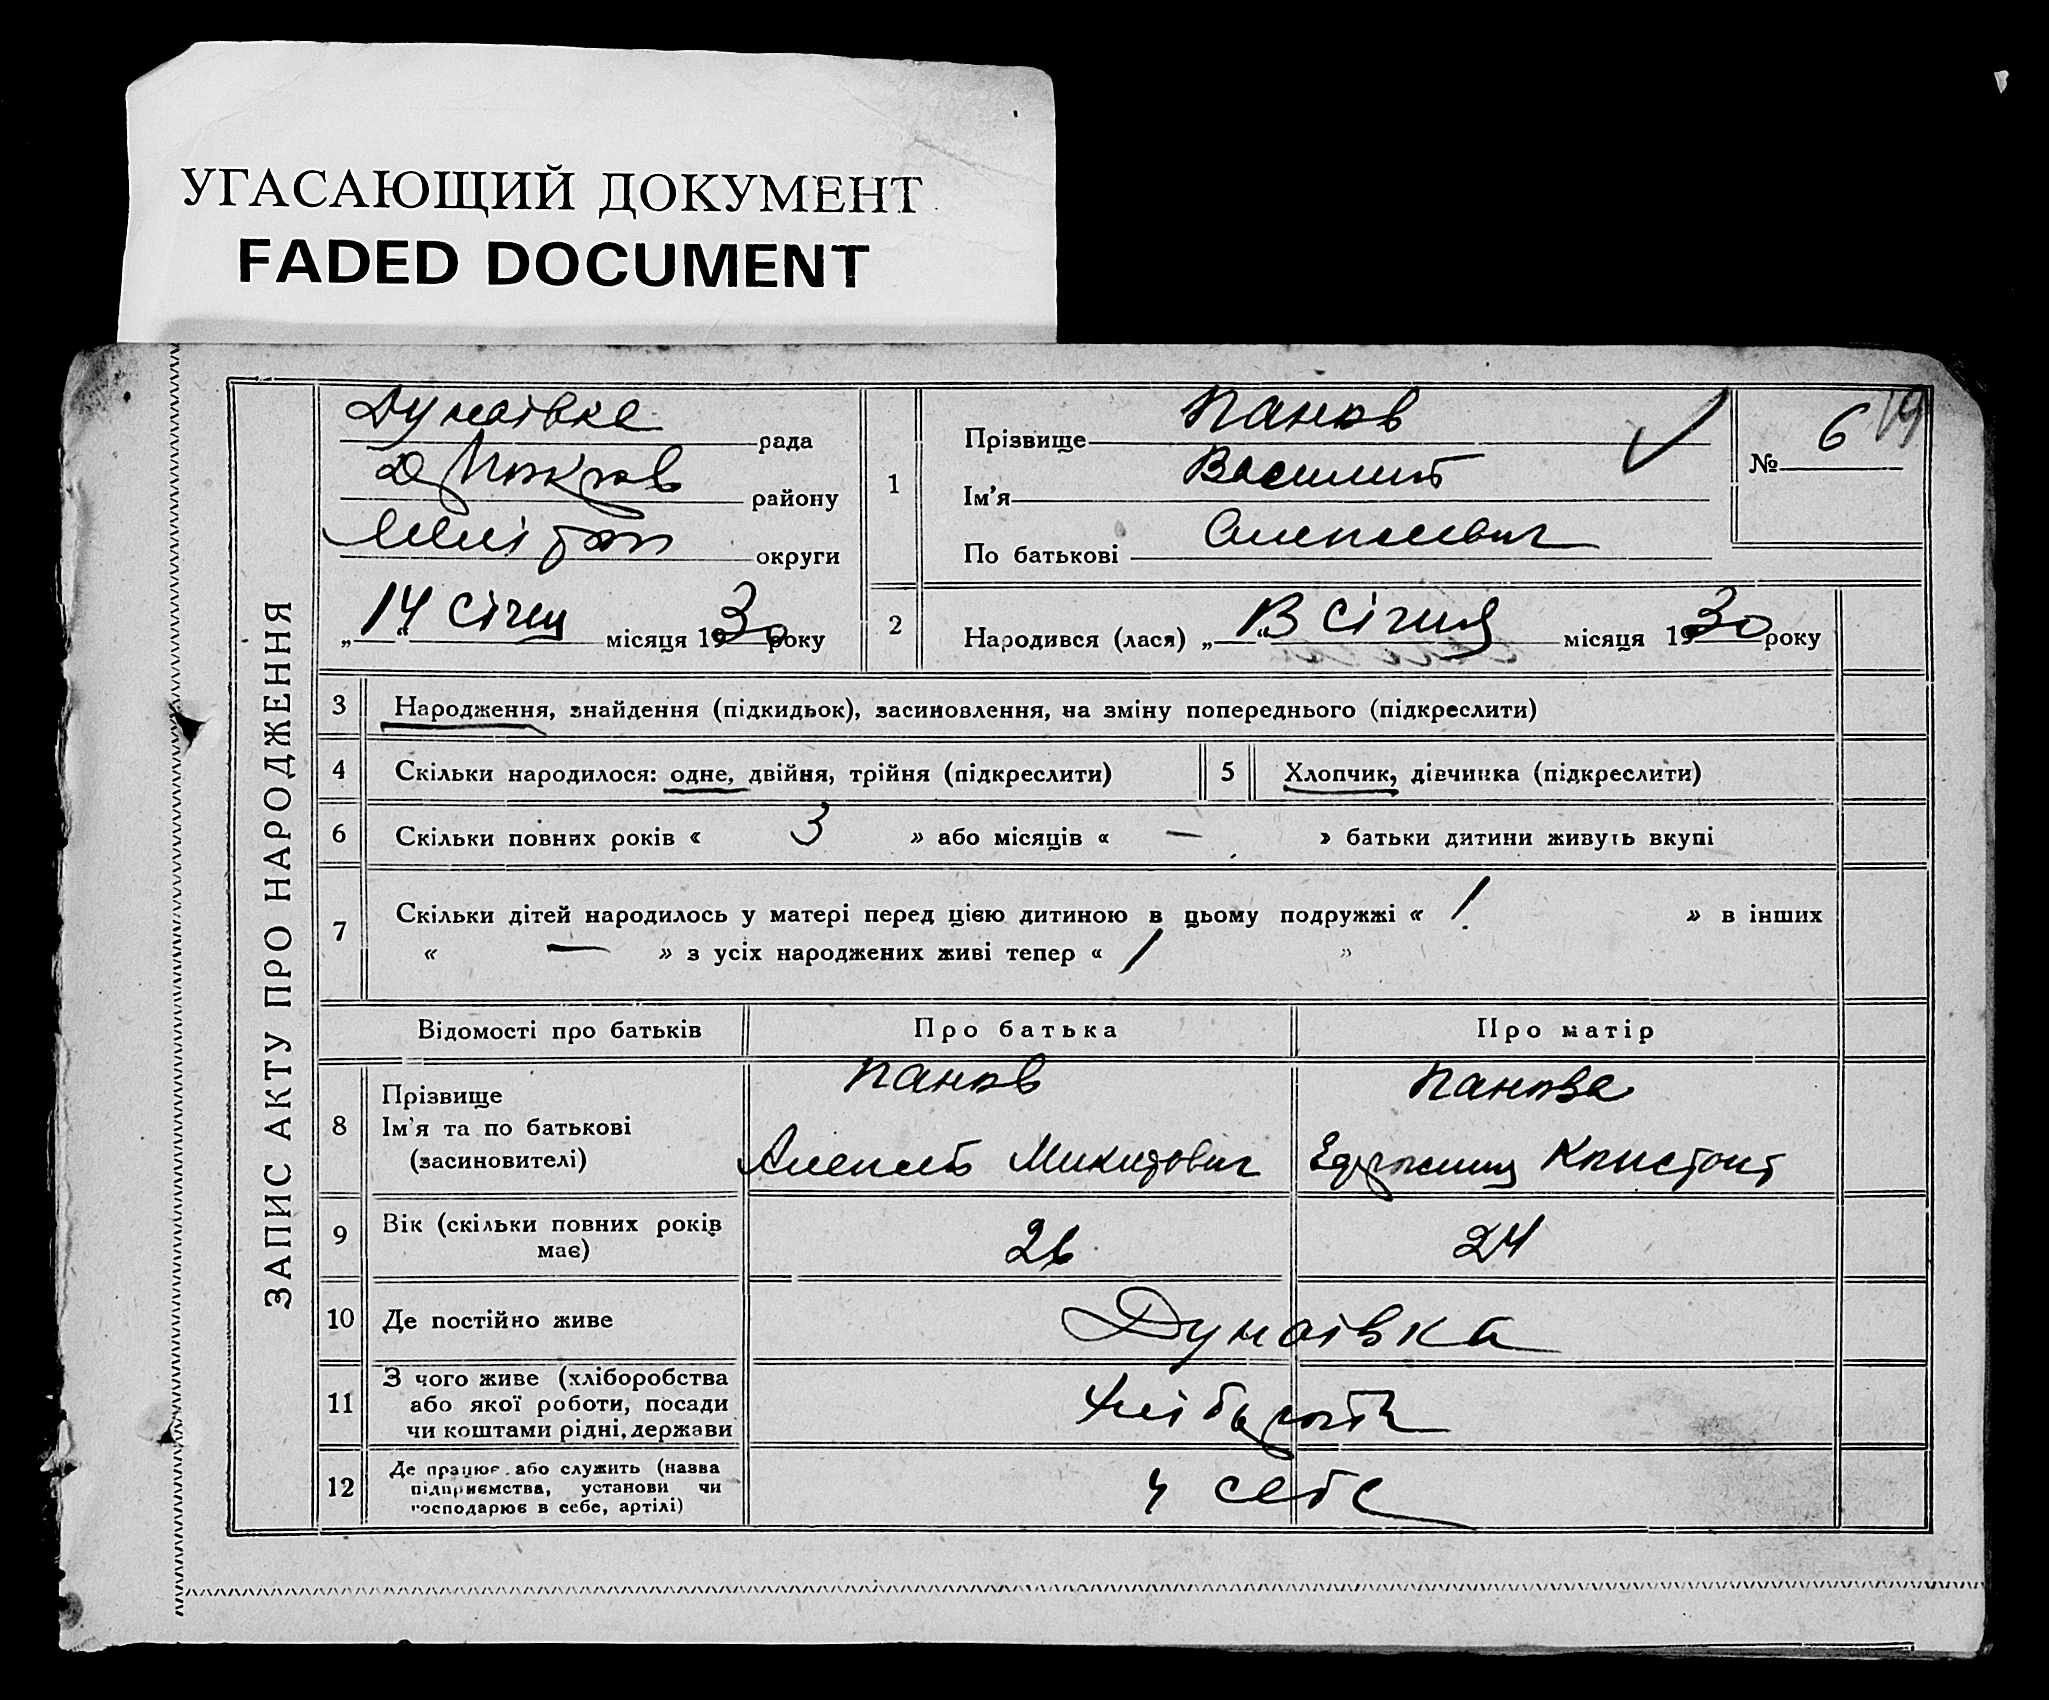 УГАСАЮЩИЙ ДОКУМЕНТ
FADED DOCUMENT
ЗАПИС АКТУ ПРО НАРОДЖЕННЯ
Дунаівка рада
району
округи
„14“ січня місяця 1930 року
1
Прізвище Панов
Ім'я Василий
По батькові Алексеевич
№ 6
19
2
Народився (лася) „13“ січня місяця 1930 року
3 Народження, знайдення (підкидьок), засиновлення, на зміну попереднього (підкреслити)
4 Скільки народилося: одне, двійня, трійня (підкреслити)
5 Хлопчик, дівчинка (підкреслити)
6 Скільки повних років « 3 » або місяців « — » батьки дитини живуть вкупі
7 Скільки дітей народилось у матері перед цією дитиною в цьому подружжі « 1 » в інших
« — » з усіх народжених живі тепер « 1 »
Відомості про батьків Про батька Про матір
8 Прізвище Панов Панова
Ім'я та по батькові
(засиновителі) Алексей Микитович
9 Вік (скільки повних років
має) 26 24
10 Де постійно живе Дунаівка
11 З чого живе (хліборобства
або якої роботи, посади
чи коштами рідні, держави
12 Де працює або служить (назва
підприємства, установи чи
господарює в себе, артілі) у себе